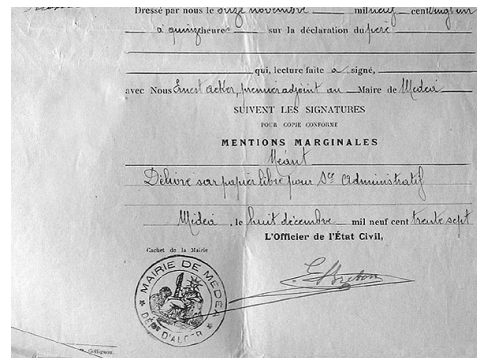 Dressé par nous le onze novembre mil neuf cent vingt un
à quinze heures sur la déclaration du père
qui, lecture faite a signé,
avec Nous Ernest Acker, premier adjoint au Maire de Médéa
SUIVENT LES SIGNATURES
POUR COPIE CONFORME
MENTIONS MARGINALES
Néant
Délivré sur papier libre pour Sce Administratif
Médéa, le huit décembre mil neuf cent trente sept
L'Officier de l'État Civil,
Cachet de la Mairie
MAIRIE DE MÉDÉA
DÉPT D'ALGER